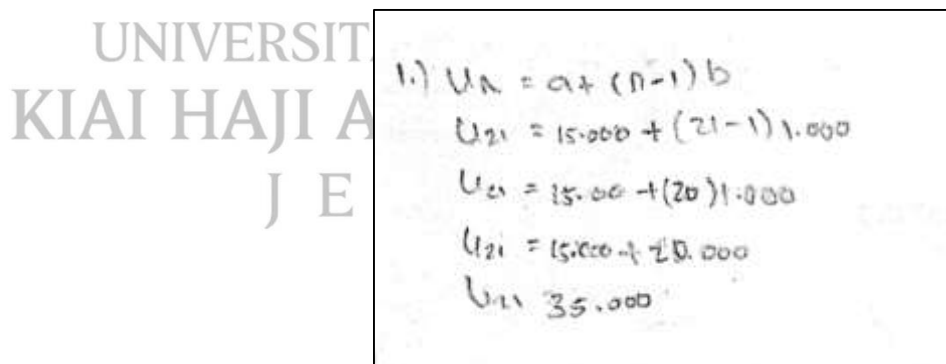 UNIVERSIT
KIAI HAJI A
J E
1.) Un = a + (n-1) b
U21 = 15.000 + (21-1) 1.000
U21 = 15.00 + (20) 1.000
U21 = 15.000 + 20.000
U21 35.000